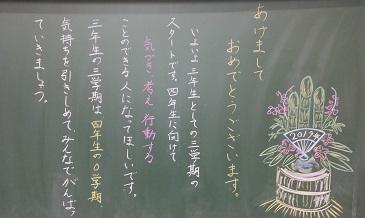 あけまして
おめでとうございます。
いよいよ三年生としての三学期の
スタートです。四年生に向けて
気づき、考え、行動する
ことのできる人になってほしいです。
三年生の三学期は、四年生の0学期、
気持ちを引きしめて、みんなでがんばっ
ていきましょう。
2017年